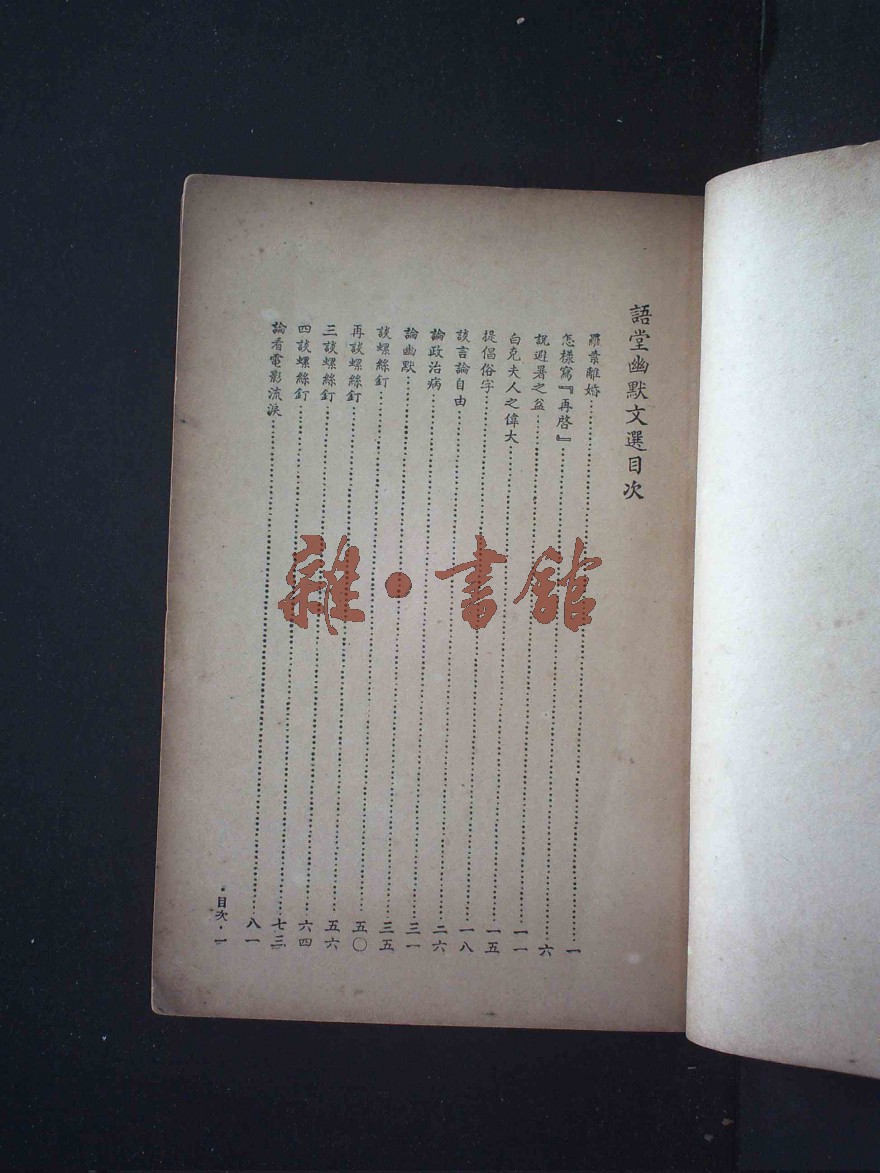 語堂幽默文選目次
羅素離婚……一
怎樣寫『再啓』……六
說避暑之益……一一
白克夫人之偉大……一五
提倡俗字……一八
談言論自由……二六
論政治病……三一
論幽默……三五
談螺絲釘……五〇
再談螺絲釘……五六
三談螺絲釘……六四
四談螺絲釘……七三
論看電影流淚……八一
・目次・一
雜・書館